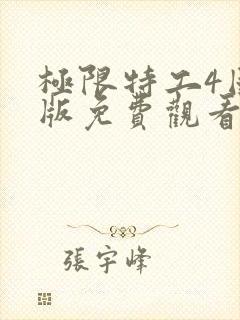 極限特工4
版免費觀看
張宇峰